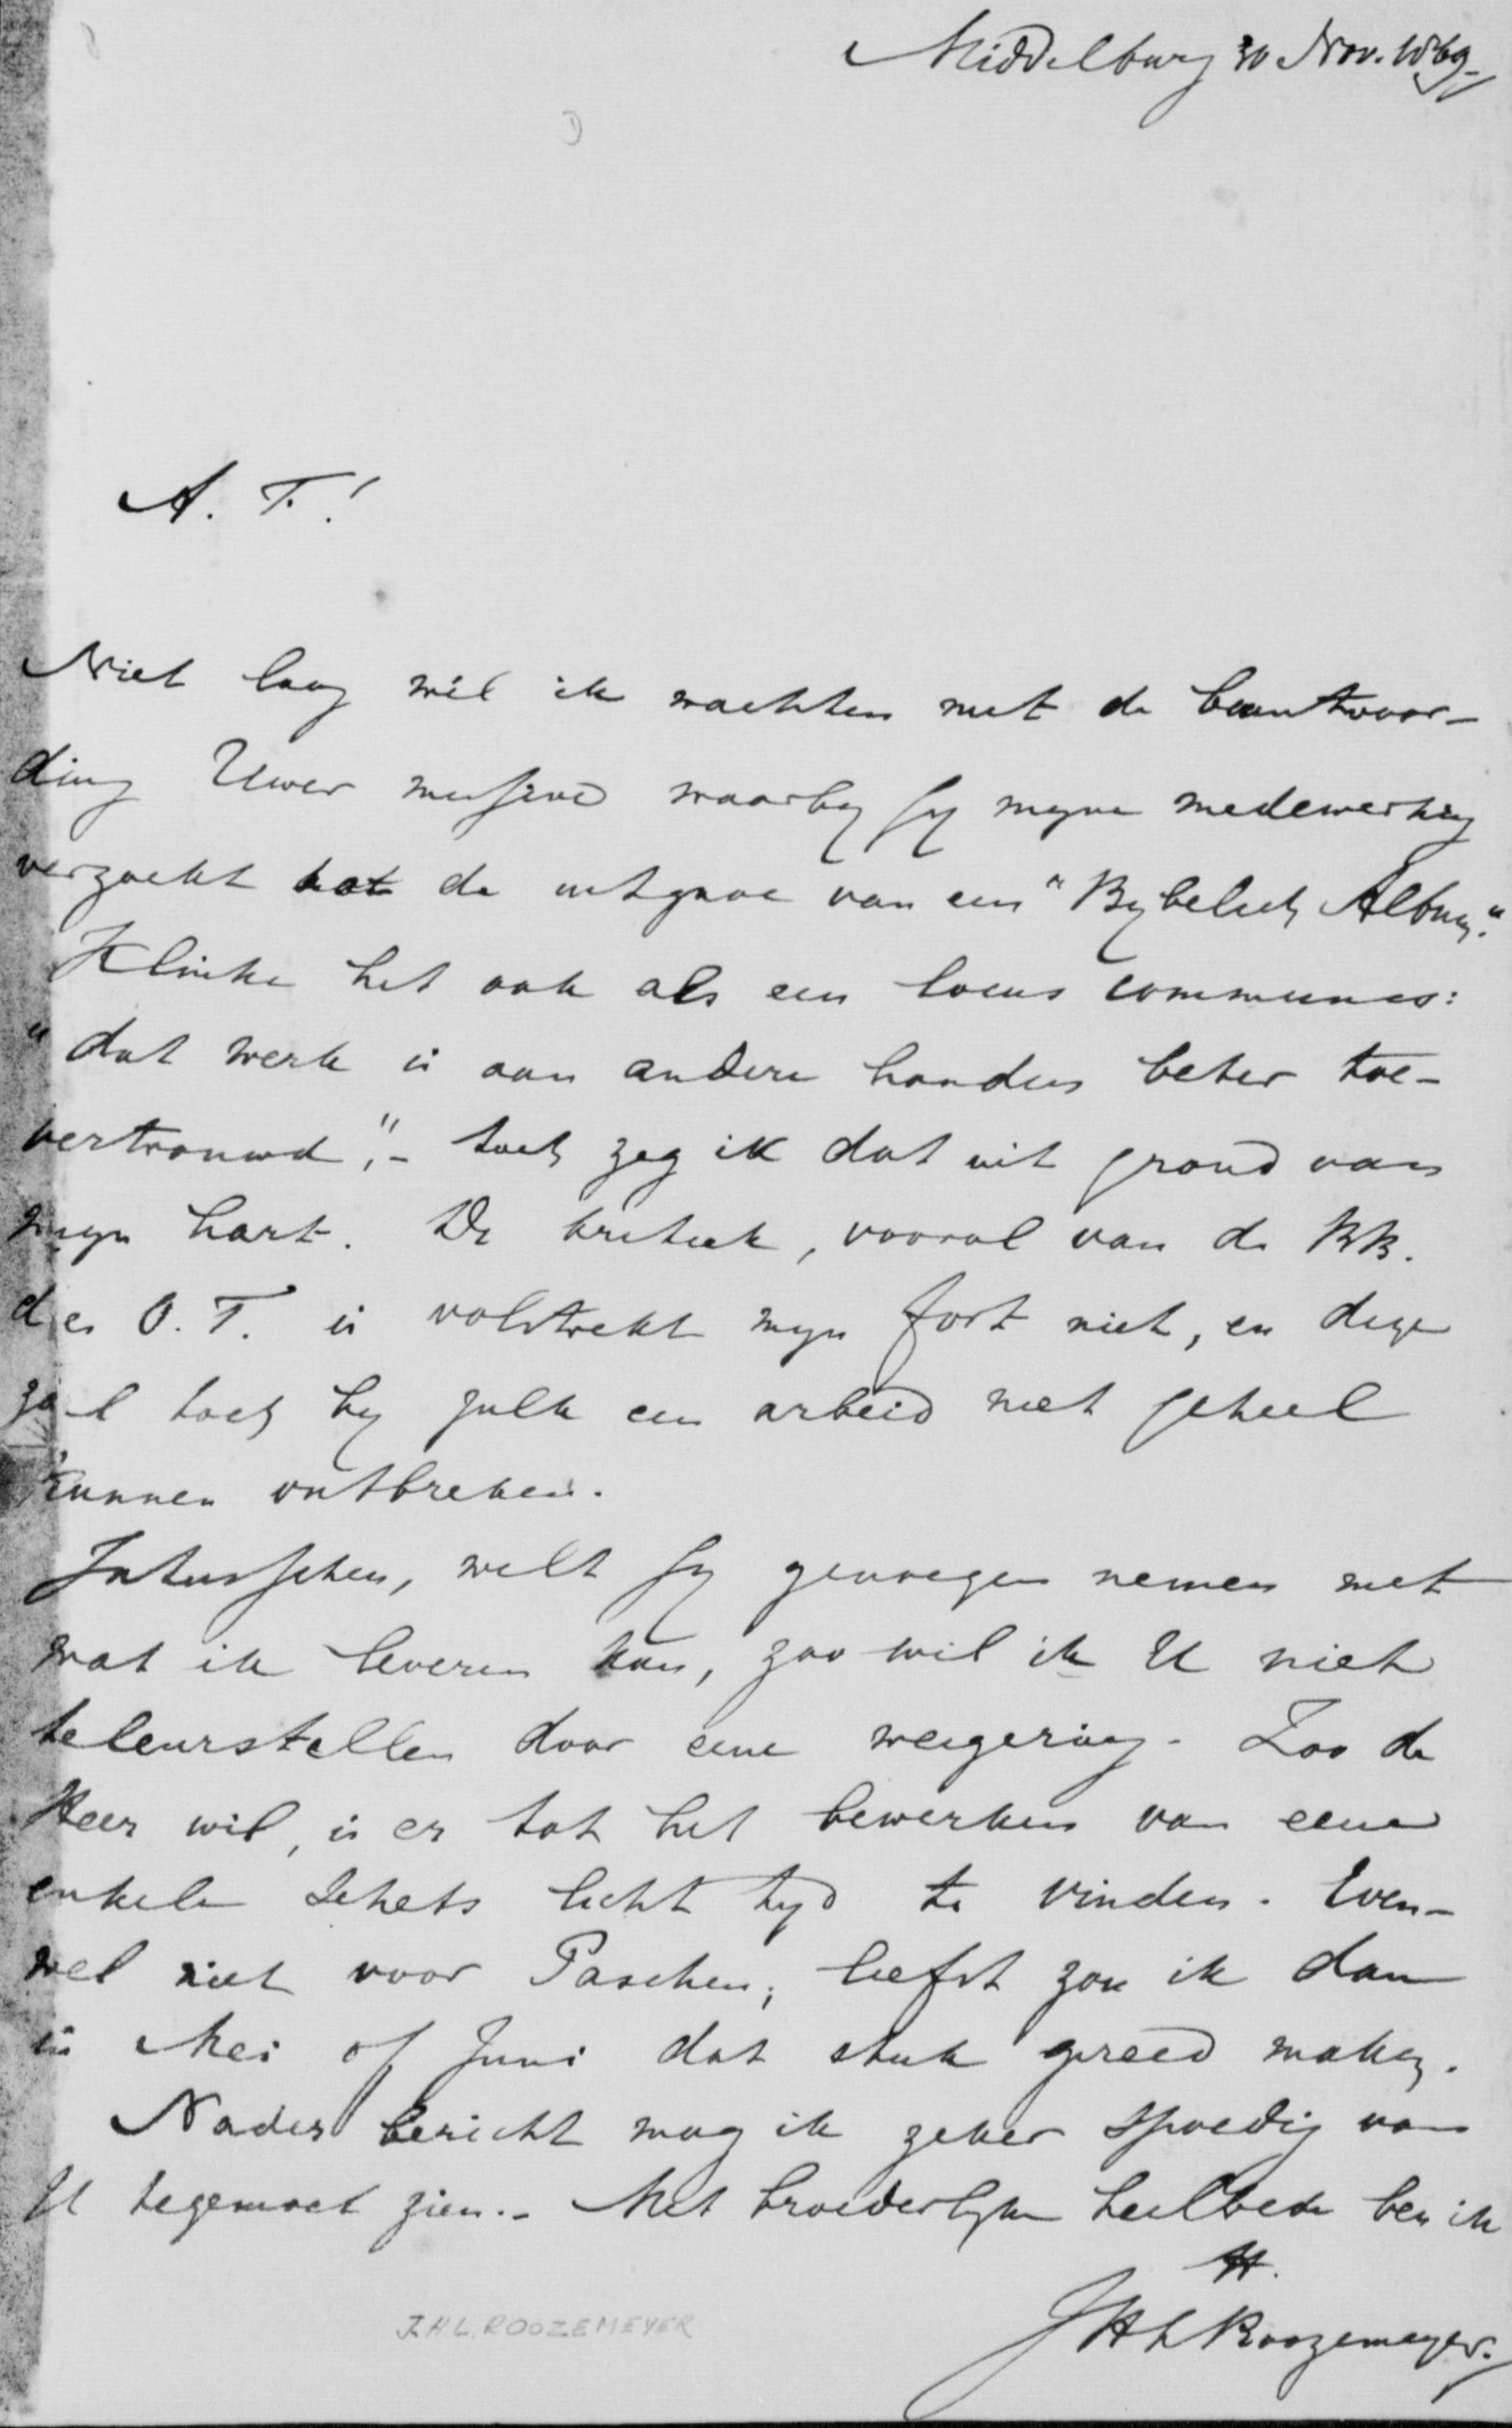 Middelburg 30 Nov. 1869.
A. T.!
Niet lang wil ik wachten met de beantwoor-
ding Uwer missive waarby gy myne medewerking
verzoekt tot de uitgave van een "Bybelsch Album."
Klinke het ook als een locus communis:
"dat werk is aan andere handen beter toe-
vertrouwd", - toch zeg ik dat uit grond van
myn hart. De kritiek, vooral van de BB.
des O. T. is volstrekt myn fort niet, en deze
zal toch by zulk een arbeid niet geheel
kunnen ontbreken.
Intusschen, wilt gy genoegen nemen met
wat ik leveren kan, zoo wil ik U niet
teleurstellen door eene weigering. Zoo de
Heer wil, is er tot het bewerken van eene
enkele schets licht tyd te vinden. Even-
wel niet voor Paschen; liefst zou ik dan
in Mei of Juni dat stuk gereed maken.
Nader bericht mag ik zeker spoedig van
U tegemoet zien. - Met broederlyke heilbede ben ik
JHL Roozemeyer.
J.H.L. ROOZEMEYER